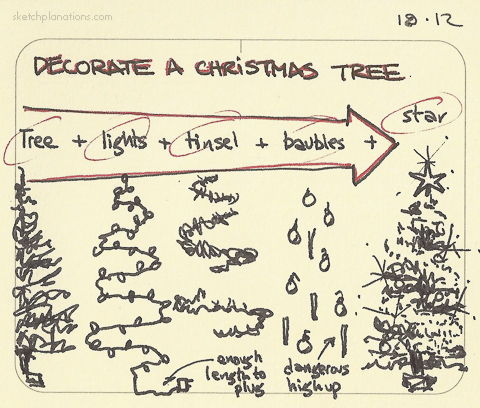 sketchplanations.com
18.12
DECORATE A CHRISTMAS TREE
Tree + lights + tinsel + baubles + star
enough
length to
plug
dangerous
high up